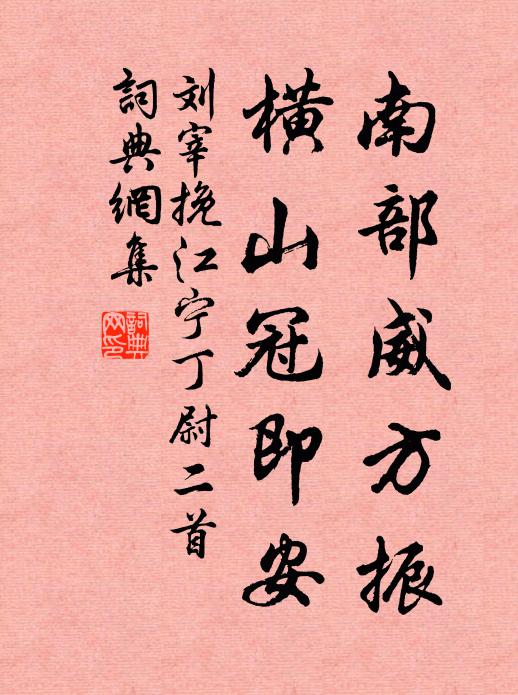 南部威方振
横山冠即安
刘宰挽江宁丁尉二首
词典網集
詞典網印